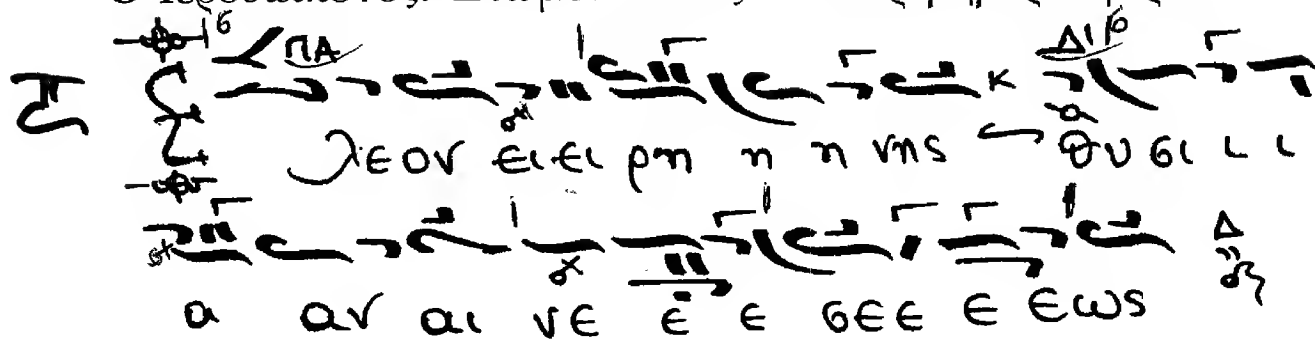 ΠΑ Δι
Ελεον ειει ρη η η νης θυ σι ι ι
α αν αι νε ε ε σεε ε εως